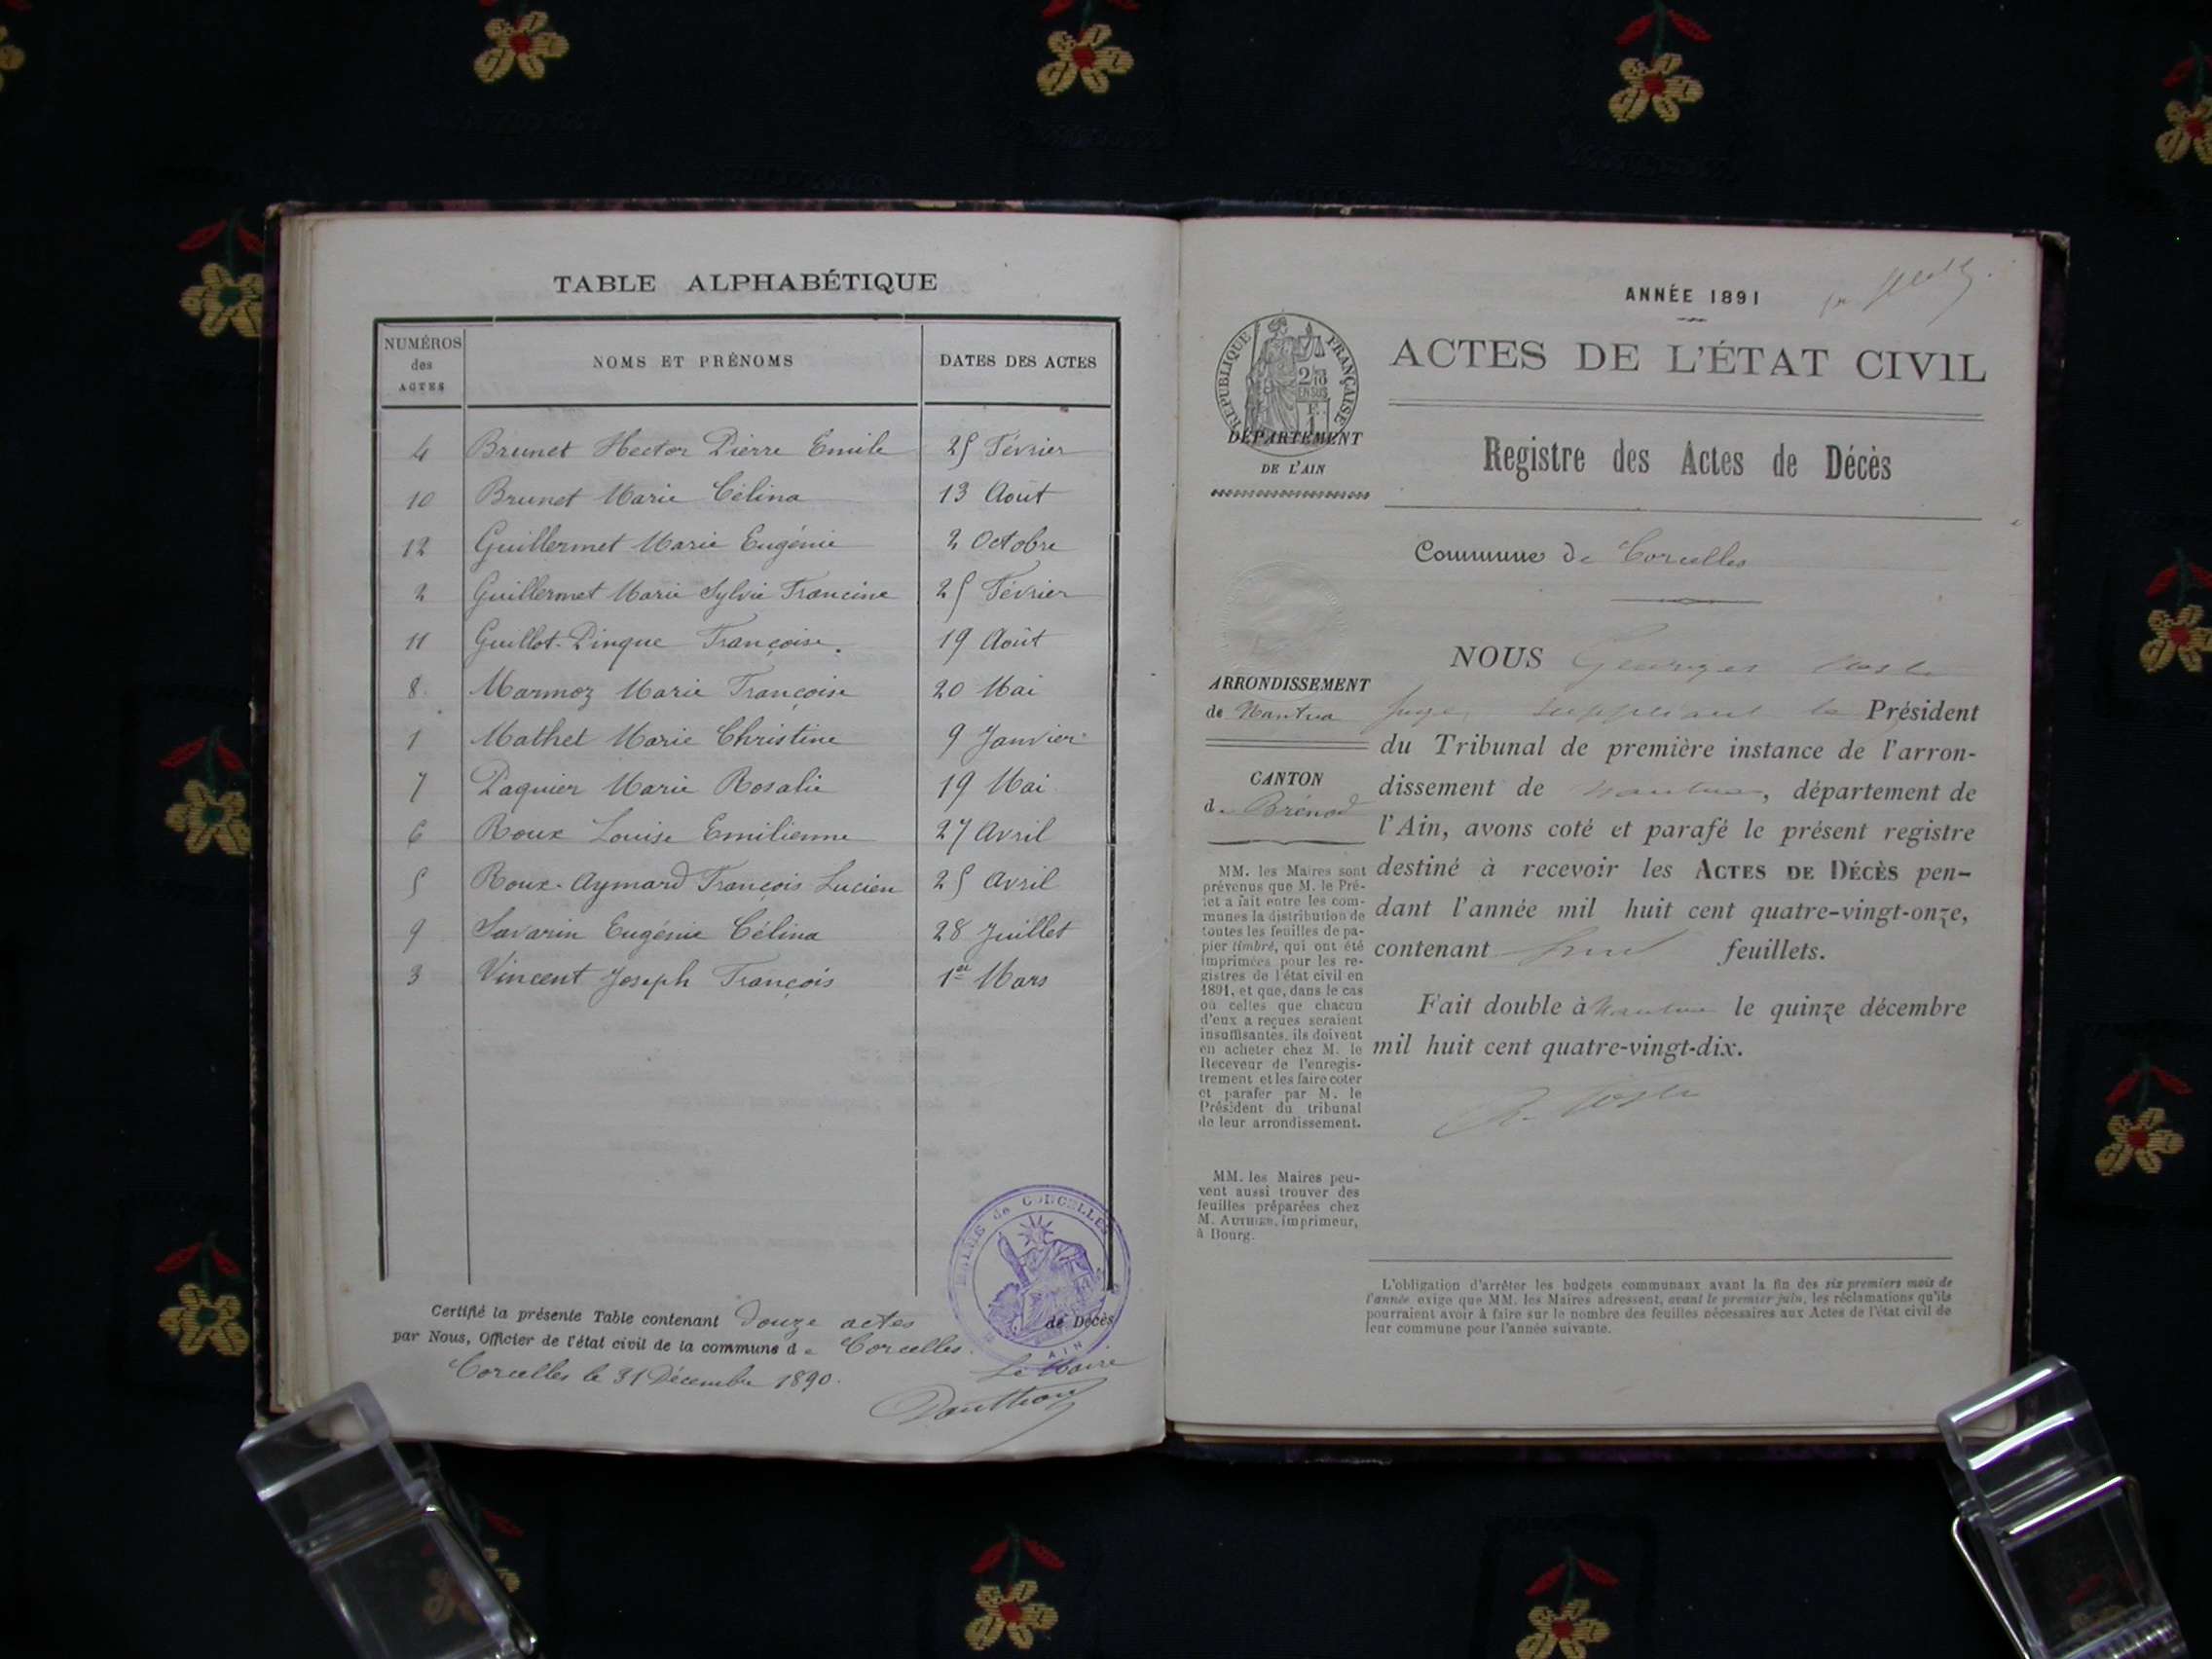 TABLE ALPHABÉTIQUE
NUMÉROS des ACTES
NOMS ET PRÉNOMS
DATES DES ACTES
4 Brunet Hector Pierre Emile 25 Février
10 Brunet Marie Célina 13 Août
12 Guillermet Marie Eugénie 2 Octobre
2 Guillermet Marie Sylvie Francine 25 Février
11 Guillot-Pingue Françoise. 19 Août
8 Marmoz Marie Françoise 20 Mai
1 Mathet Marie Christine 9 Janvier
7 Paquier Marie Rosalie 19 Mai
6 Roux Louise Emilienne 27 Avril
5 Roux-Aymard François Lucien 25 Avril
9 Savarin Eugénie Célina 28 Juillet
3 Vincent Joseph François 1er Mars
Certifié la présente Table contenant Douze actes de Décès
par Nous, Officier de l'état civil de la commune de Corcelles.
Corcelles le 31 Décembre 1890.
Le Maire
MAIRIE de CORCELLES
AIN
ANNÉE 1891
RÉPUBLIQUE FRANÇAISE
2/10
EN SUS
ACTES DE L'ÉTAT CIVIL
DÉPARTEMENT
DE L'AIN
Registre des Actes de Décès
Commune de Corcelles
ARRONDISSEMENT
de Nantua
CANTON
de Brénod
MM. les Maires sont
prévenus que M. le Pré-
fet a fait entre les com-
munes la distribution de
toutes les feuilles de pa-
pier timbré, qui ont été
imprimées pour les re-
gistres de l'état civil en
1891, et que, dans le cas
où celles que chacun
d'eux a reçues seraient
insuffisantes, ils doivent
en acheter chez M. le
Receveur de l'enregis-
trement et les faire coter
et parafer par M. le
Président du tribunal
de leur arrondissement.
MM. les Maires peu-
vent aussi trouver des
feuilles préparées chez
M. AUTHIER, imprimeur,
à Bourg.
NOUS Georges
juge suppléant le Président
du Tribunal de première instance de l'arron-
dissement de Nantua, département de
l'Ain, avons coté et parafé le présent registre
destiné à recevoir les ACTES DE DÉCÈS pen-
dant l'année mil huit cent quatre-vingt-onze,
contenant feuillets.
Fait double à Nantua le quinze décembre
mil huit cent quatre-vingt-dix.
L'obligation d'arrêter les budgets communaux avant la fin des six premiers mois de
l'année exige que MM. les Maires adressent, avant le premier juin, les réclamations qu'ils
pourraient avoir à faire sur le nombre des feuilles nécessaires aux Actes de l'état civil de
leur commune pour l'année suivante.